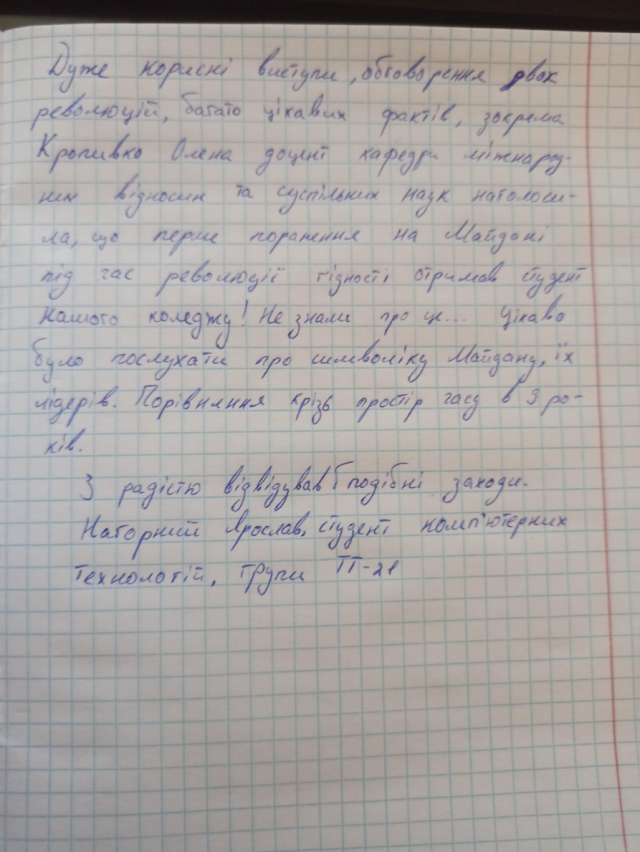 Дуже корисні виступи, обговорення двох
революцій, багато цікавих фактів, зокрема
Кропивко Олена доцент кафедри міжнарод-
них відносин та суспільних наук наголоси-
ла, що перше поранення на Майдані
під час революції гідності отримав студент
нашого коледжу! Не знали про це... Цікаво
було послухати про символіку Майдану, їх
лідерів. Порівняння крізь простір часу в 9 ро-
ків.
З радістю відвідував б подібні заходи.
Нагорний Ярослав, студент комп'ютерних
технологій, групи ІТ-21